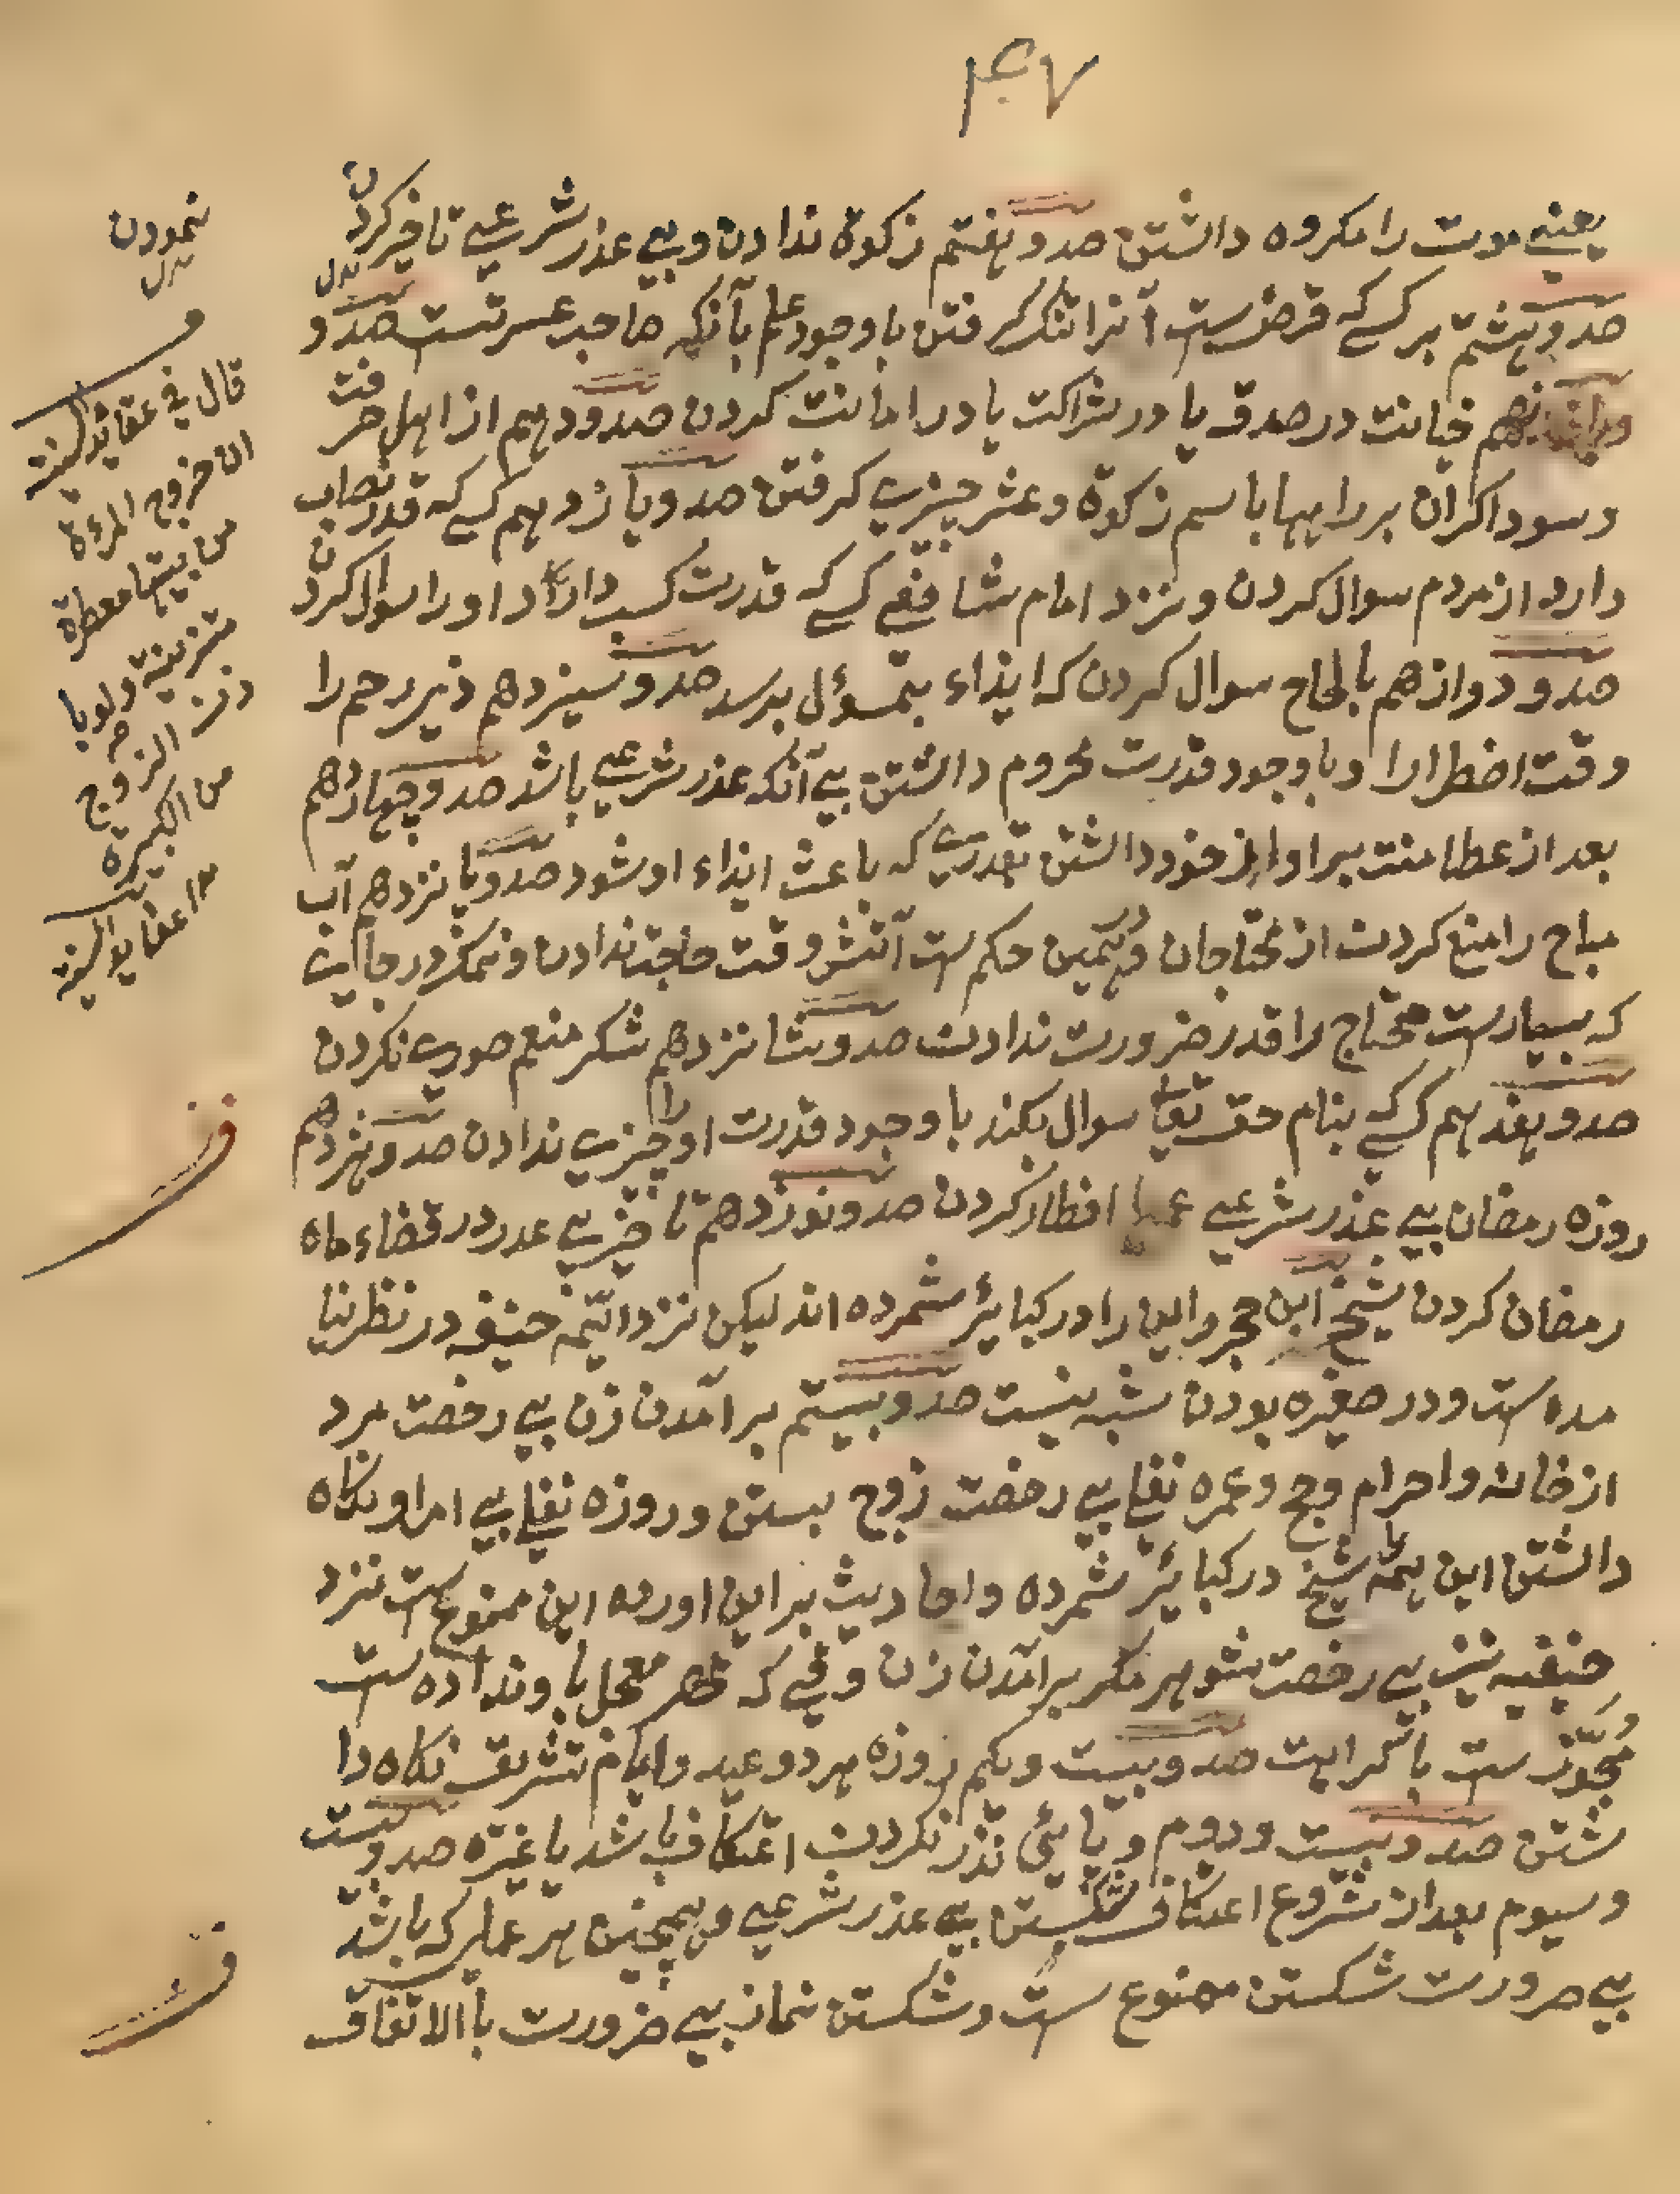 ۴۷
یعنے موت را مکروه داشتن صد و هفتم زکوة ندادن و بے عذر شرعے تاخیر کردن
صد و هشتم بر کسے که قرض ست آنرا تنگ گرفتن باوجود علم بآنکه صاحب عسرتست صد و
نهم خیانت در صدقه یا در شراکت یا در امانت کردن صد و دهم از اهل حرفت
و سوداگران بر راهها باسم زکوة و عشر چیزے گرفتن صد و یازدهم کسے که قدر نصاب
دارد از مردم سوال کردن و نزد امام شافعے کسے که قدرت کسب دارد او را سوال کردن
صد و دوازدهم بالحاح سوال کردن که ایذاء بمسؤل برسد صد و سیزدهم ذیرحم را
وقت اضطرارا و باوجود قدرت محروم داشتن بے آنکه عذر شرعے باشد صد و چهاردهم
بعد از عطا منت بر او از خود داشتن بقدرے که باعث ایذاء او شود صد و پانزدهم آب
مباح را منع کردن از محتاجان و همین حکم ست آتش وقت حاجت ندادن و نمک در جائیت
که بسیارست محتاج را قدر ضرورت ندادن صد و شانزدهم شکر منعم صورے نکردن
صد و هفدهم کسے که بنام حق تعا سوال بکند باوجود قدرت او را چیزے ندادن صد و هژدهم
روزه رمضان بے عذر شرعے عمدا افطار کردن صد و نوزدهم تاخیر بے عدر در قضاء ماه
رمضان کردن شیخ ابن حجر این را در کبایئر شمرده اند لیکن نزد ائیمه حنیفه در نظر نیا
مده است و در صغیره بودن شبه نیست صد و بیستم برآمدن زن بے رخصت مرد
از خانه و احرام حج و عمره نفلے بے رخصت زوج بستن و روزه نفلے بے امر او نگاه
داشتن این همه شیخ در کبایئر شمرده و احادیث بر این اورده این ممنوع ست نزد
حنیفیه نیز بے رخصت شوهر مگر برآمدن زن وقتے که مهر معجل باو نداده ست
مجوّز ست باکراهت صد و بیست و یکم روزه هر دو عید و ایام تشریق نگاه دا
شتن صد و بیست و دوم وپایئ نذر نکردن اعتکاف باشد یا غیره صد و بیست
و سیوم بعد از شروع اعتکاف شکستن بے عذر شرعے و همچنین هر عملے که باشد
بے ضرورت شکستن ممنوع ست و شکستن نماز بے ضرورت باالاتفاق
نمودن
قال فی عقائد السنیة
ان خروج المرءة
من بیتها معطرة
متزینة ولو با
ذن الزوج
من الکبیرة
عقاید السنیة